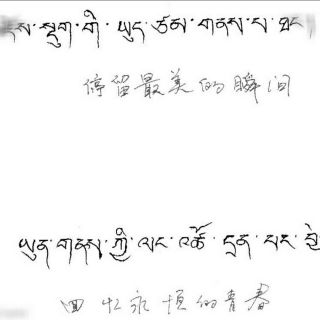 སྡུག་གི་ཡུད་ཙམ་གནས་པ་
停留最美的瞬间
ཡུན་གནས་ཀྱི་ལང་འཚོ་དྲན་པར་
回忆永恒的青春